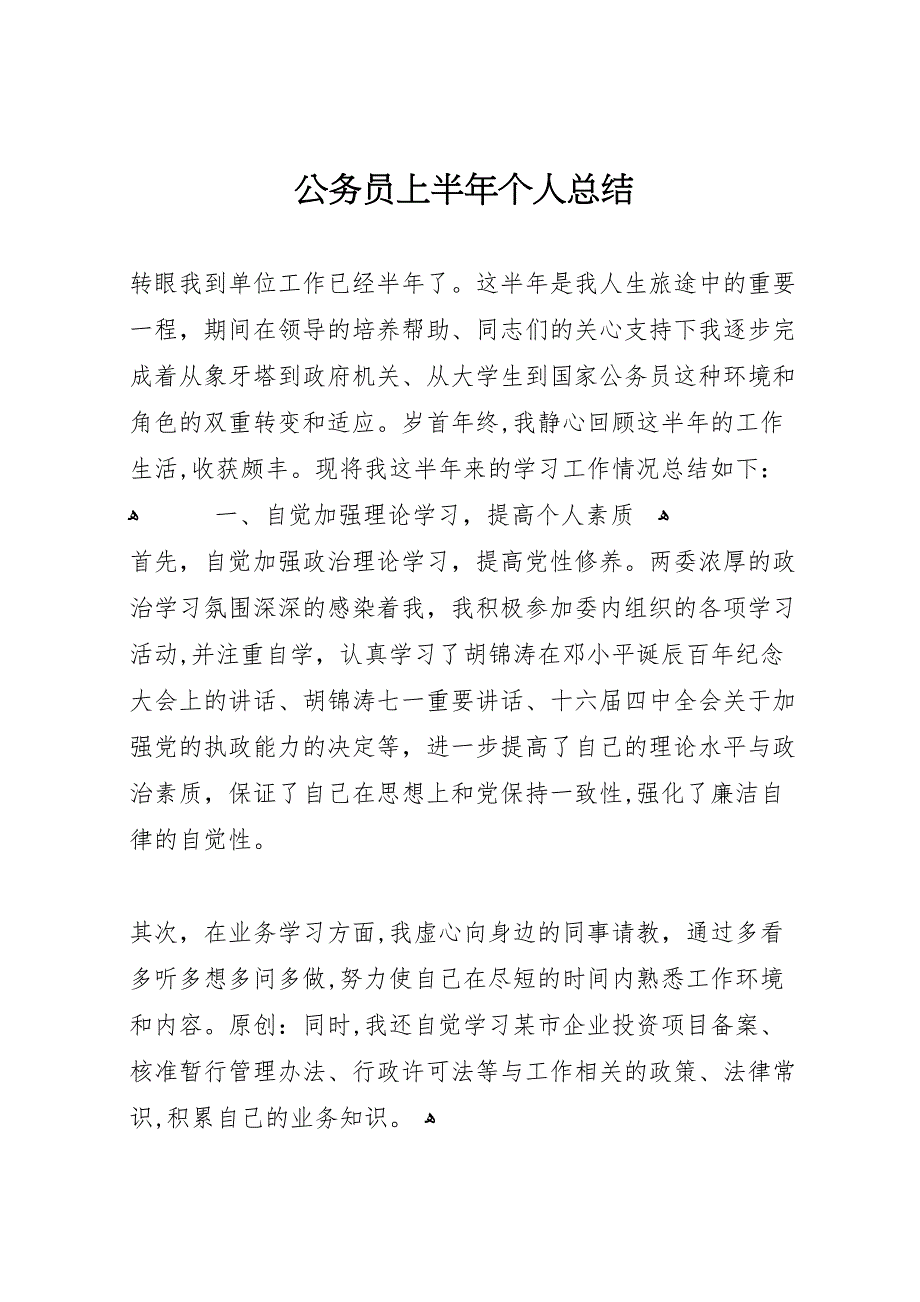 公务员上半年个人总结
转眼我到单位工作已经半年了。这半年是我人生旅途中的重要
一程，期间在领导的培养帮助、同志们的关心支持下我逐步完
成着从象牙塔到政府机关、从大学生到国家公务员这种环境和
角色的双重转变和适应。岁首年终,我静心回顾这半年的工作
生活,收获颇丰。现将我这半年来的学习工作情况总结如下：
ﻫ 一、自觉加强理论学习，提高个人素质 ﻫ
首先，自觉加强政治理论学习，提高党性修养。两委浓厚的政
治学习氛围深深的感染着我，我积极参加委内组织的各项学习
活动,并注重自学，认真学习了胡锦涛在邓小平诞辰百年纪念
大会上的讲话、胡锦涛七一重要讲话、十六届四中全会关于加
强党的执政能力的决定等，进一步提高了自己的理论水平与政
治素质，保证了自己在思想上和党保持一致性,强化了廉洁自
律的自觉性。
其次，在业务学习方面,我虚心向身边的同事请教，通过多看
多听多想多问多做,努力使自己在尽短的时间内熟悉工作环境
和内容。原创：同时,我还自觉学习某市企业投资项目备案、
核准暂行管理办法、行政许可法等与工作相关的政策、法律常
识,积累自己的业务知识。 ﻫ